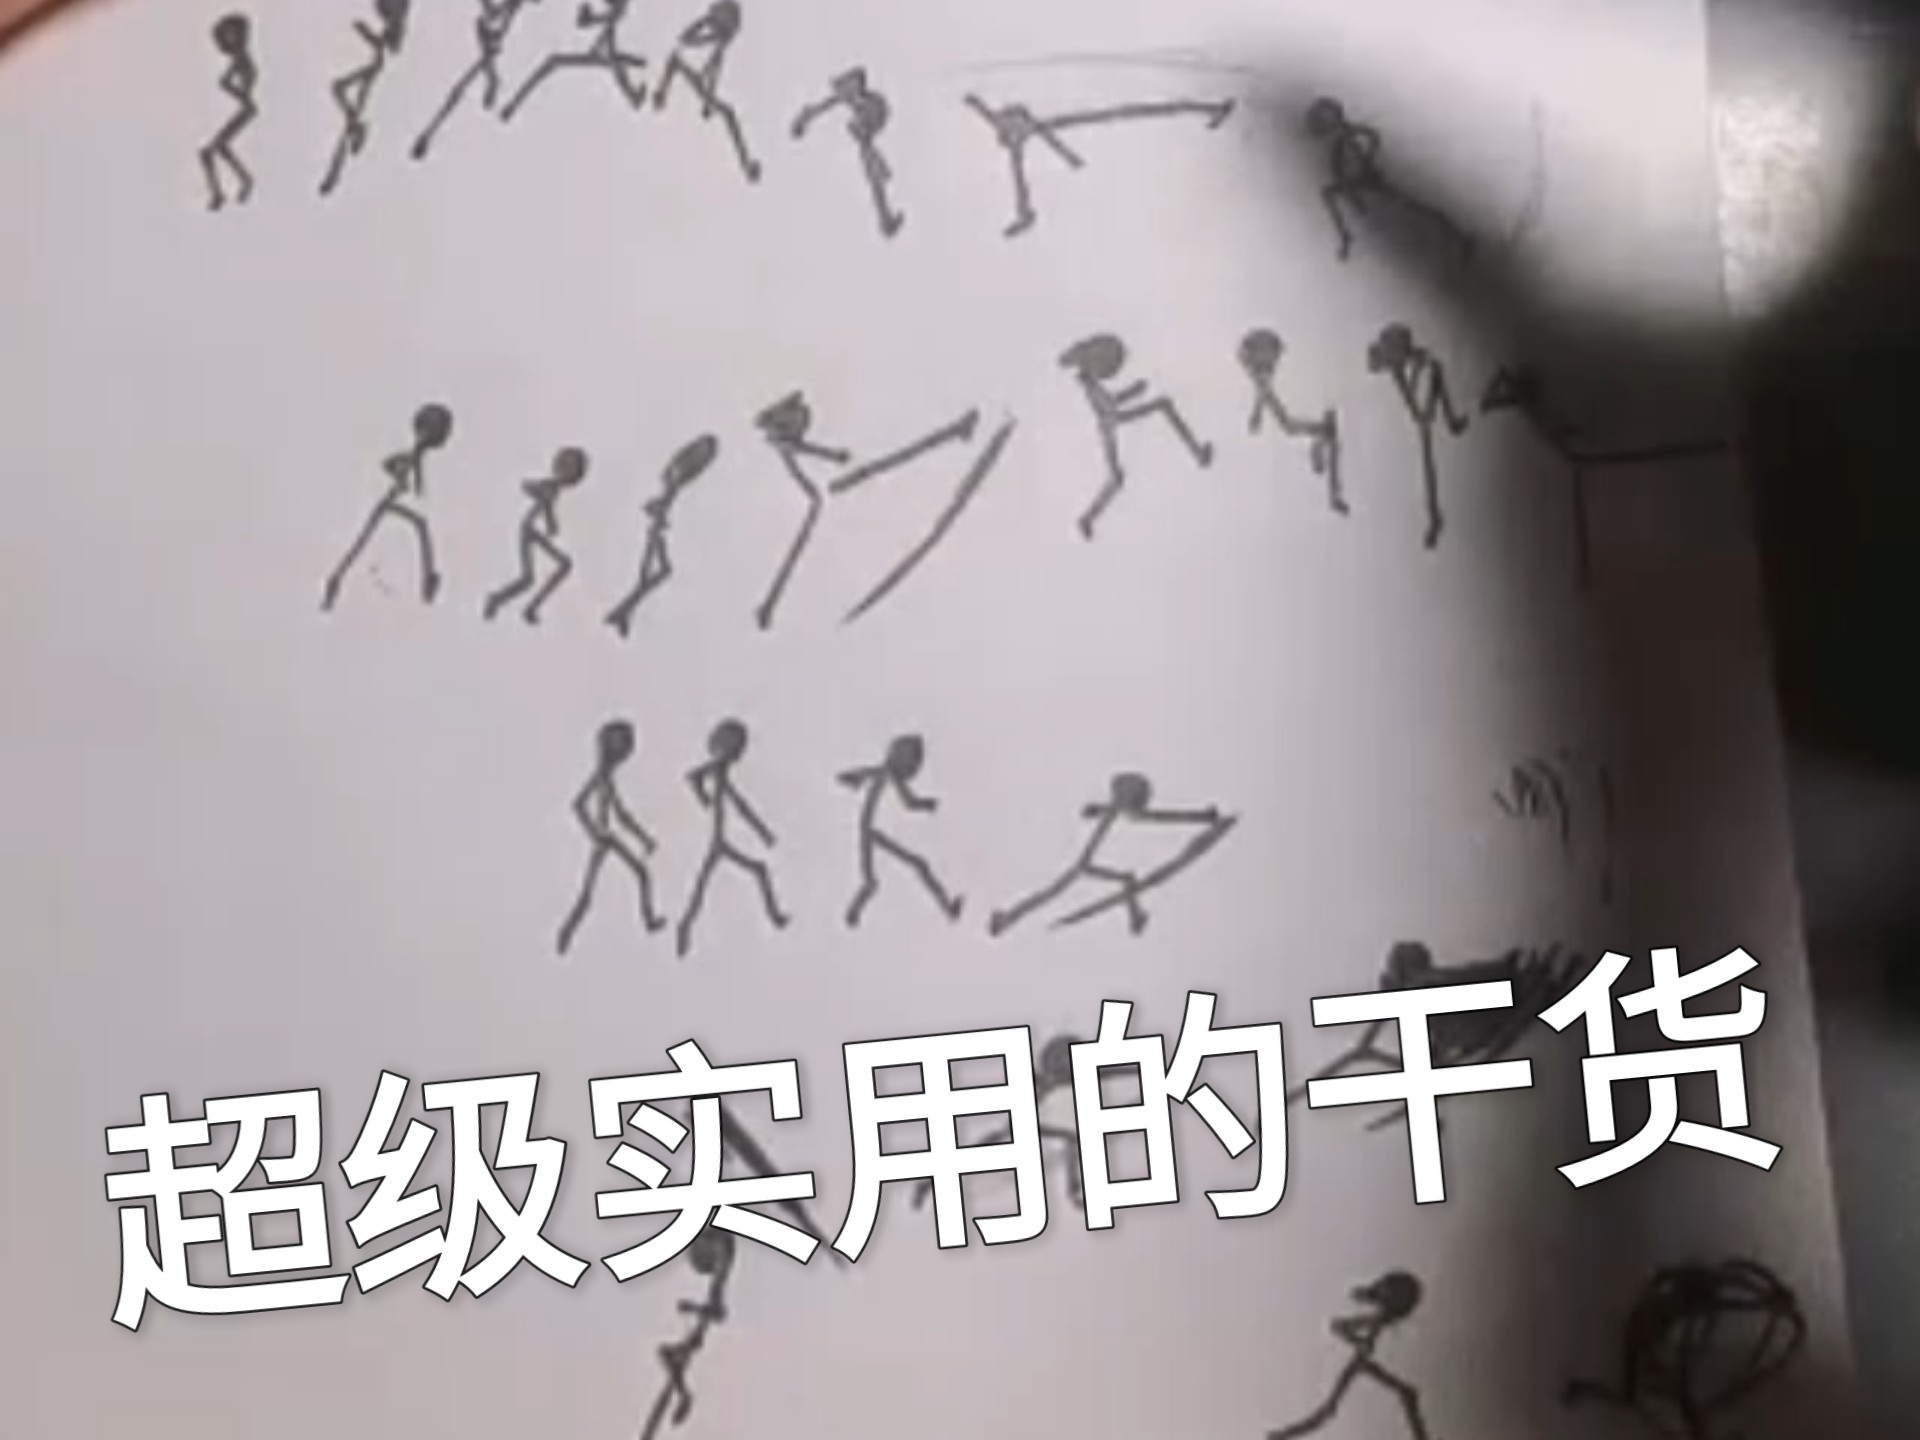 超级实用的干货